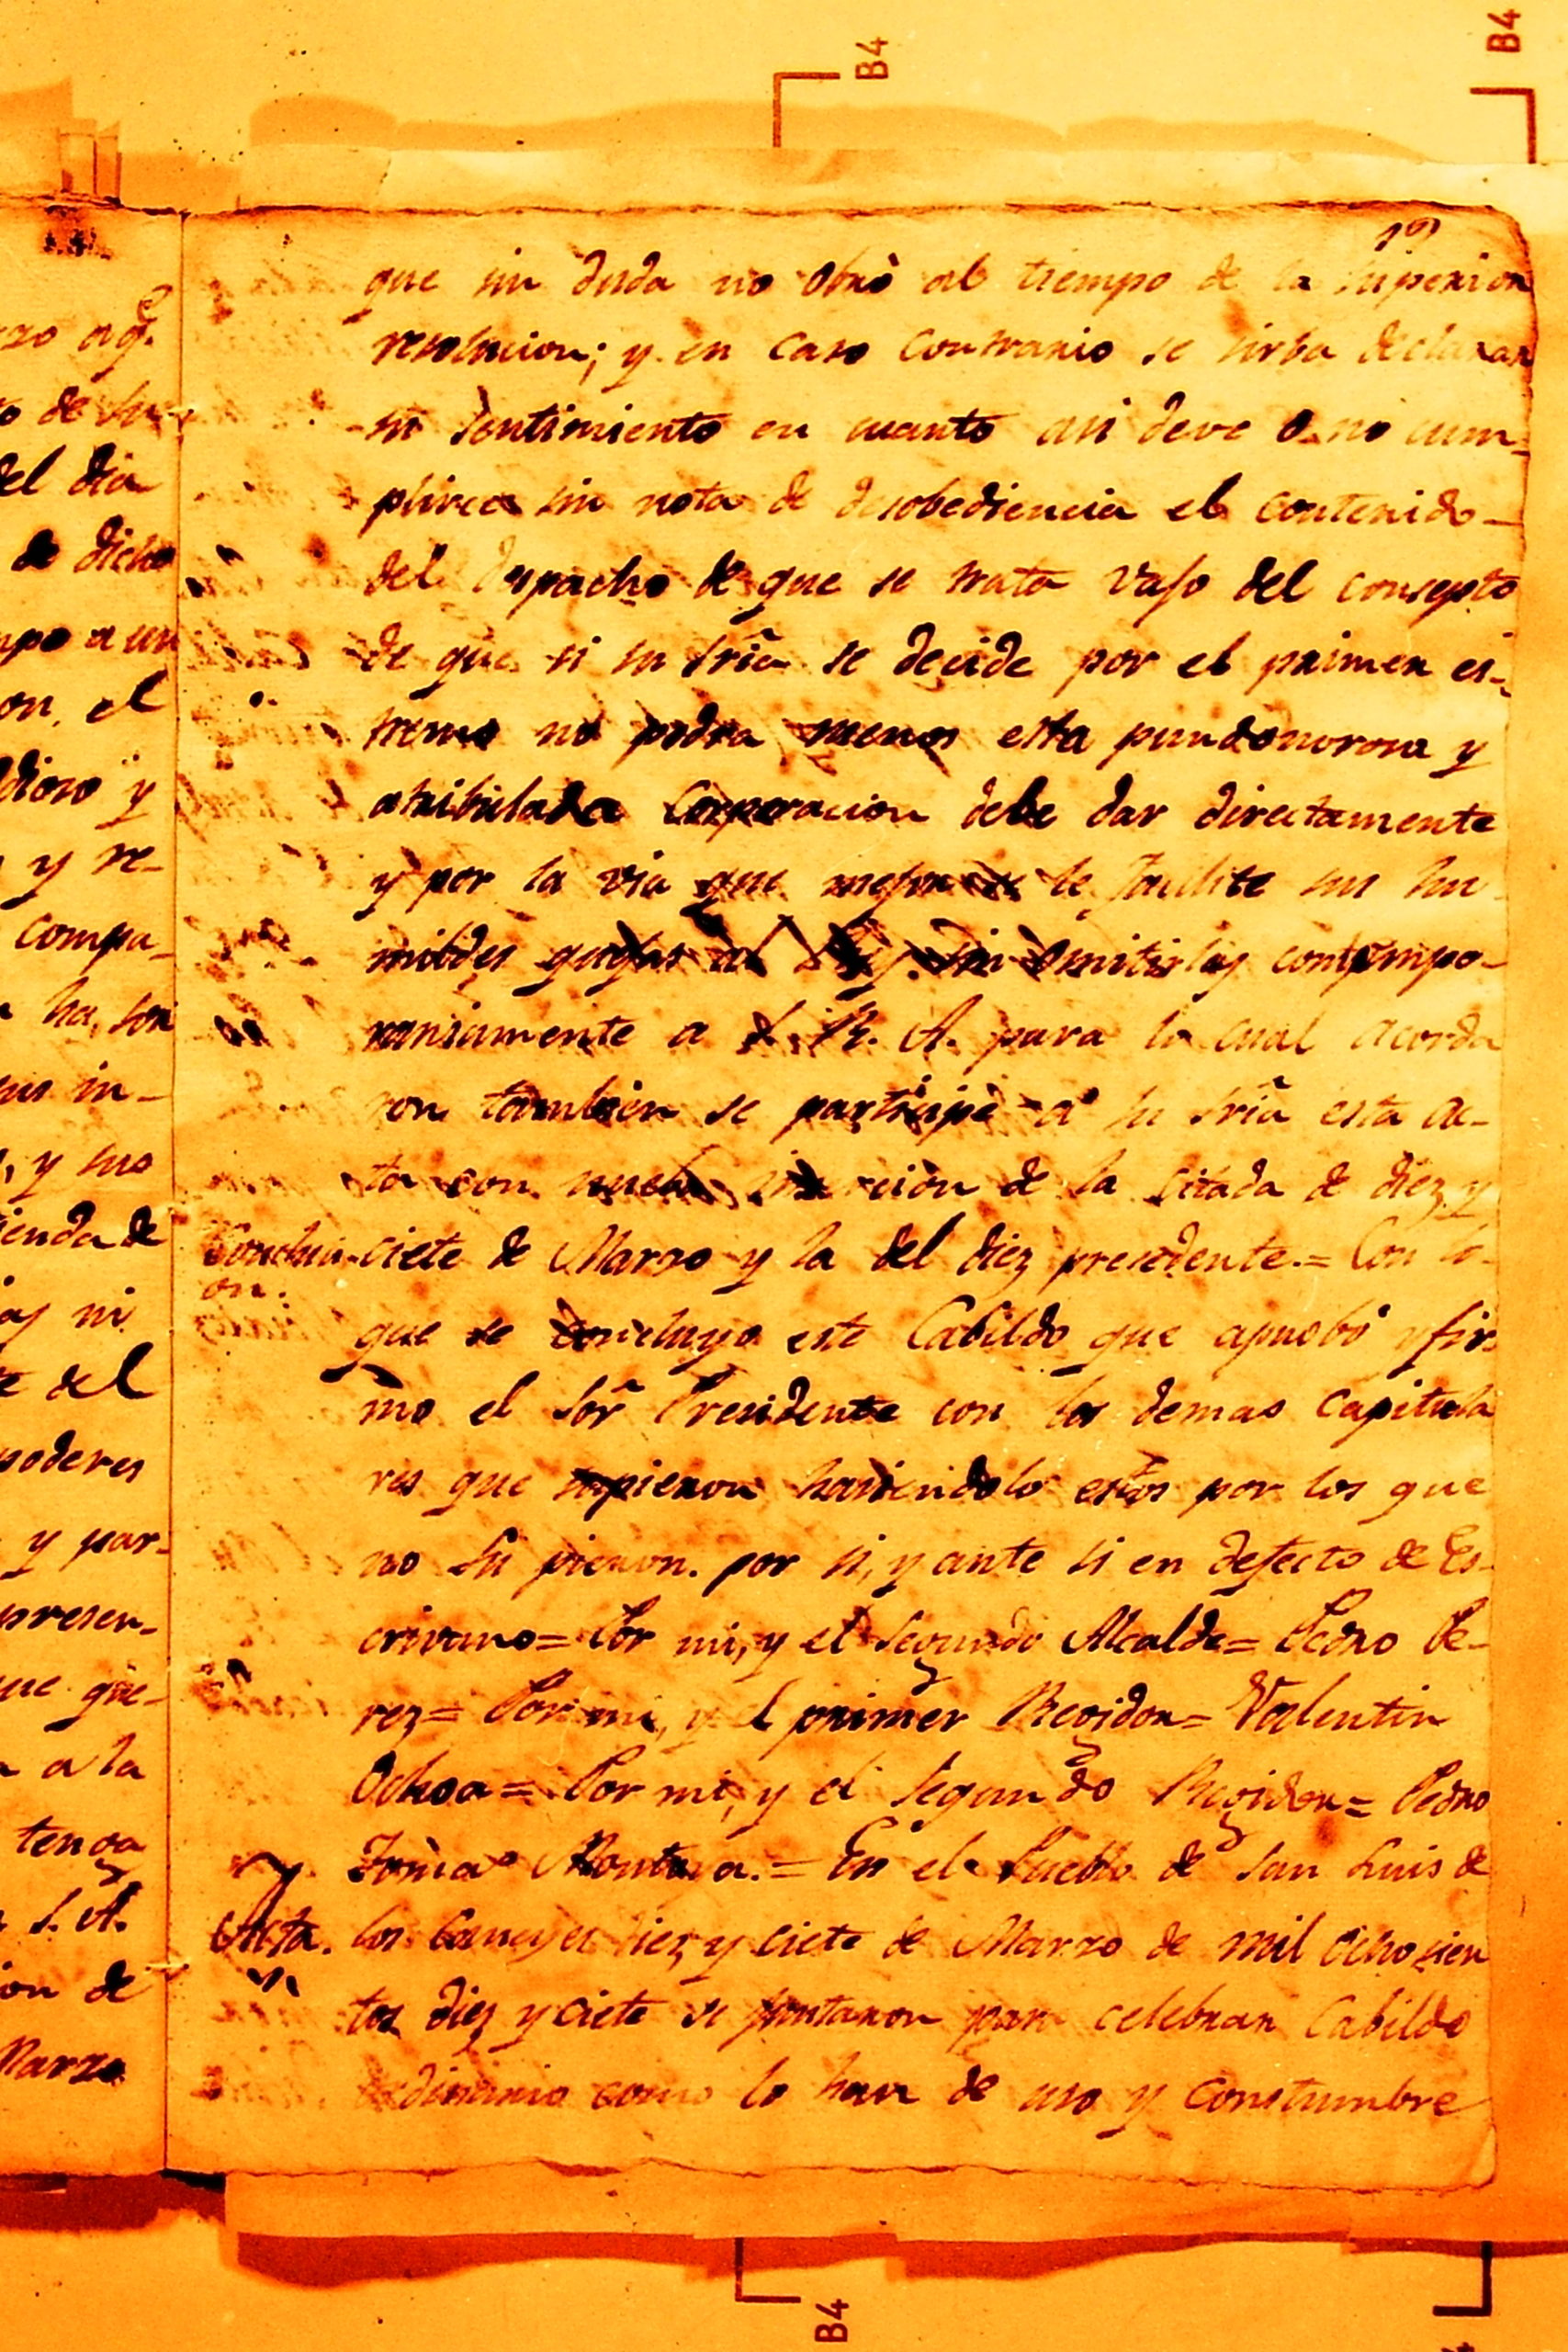 B4
B4
que sin duda no obrò al tiempo de la superior
resolucion; y en caso contrario se sirba declarar
su sentimiento en cuanto asi deve o no cum-
plirce sin nota de desobediencia el contenido
del despacho de que se trata vajo del consepto
de que si su sria se decide por el primer es-
tremo no podra menos esta pundonorosa y
atribulada Corporacion debe dar directamente
y por la via que mejor le facilite sus hu-
mildes quejas omitirlas contempo-
raniamente a S. R. A. para lo cual acorda
ron tambien se participe a su sria esta ac-
ta con de la citada de diez y
Conclusi-
on.
ciete de Marzo y la del diez precedente.= Con lo
que se concluyo este Cabildo que aprobó y fir-
mo el Sor Presidente con los demas capitula
res que supieron haciendolo estos por los que
no supieron. por si, y ante si en defecto de Es-
crivano= Por mi, y el segundo Alcalde= Pedro Pe-
rez= Por mi, y el primer Regidor= Valentin
Ochoa= Por mi, y el segundo Regidor= Pedro
Montoya.= En el Pueblo de San Luis de
Acta.
los diez y ciete de Marzo de mil ochosien
tos diez y ciete se juntaron para celebrar Cabildo
ordinario como lo han de uso y constumbre
zo
de su
del dia
de dicho
a un
on, el
y
y re-
compa-
ha, son
sus in-
, y sus
de
ni
del
poderes
y par-
presen-
que
a la
tenga
S. A.
on de
Marzo
B4